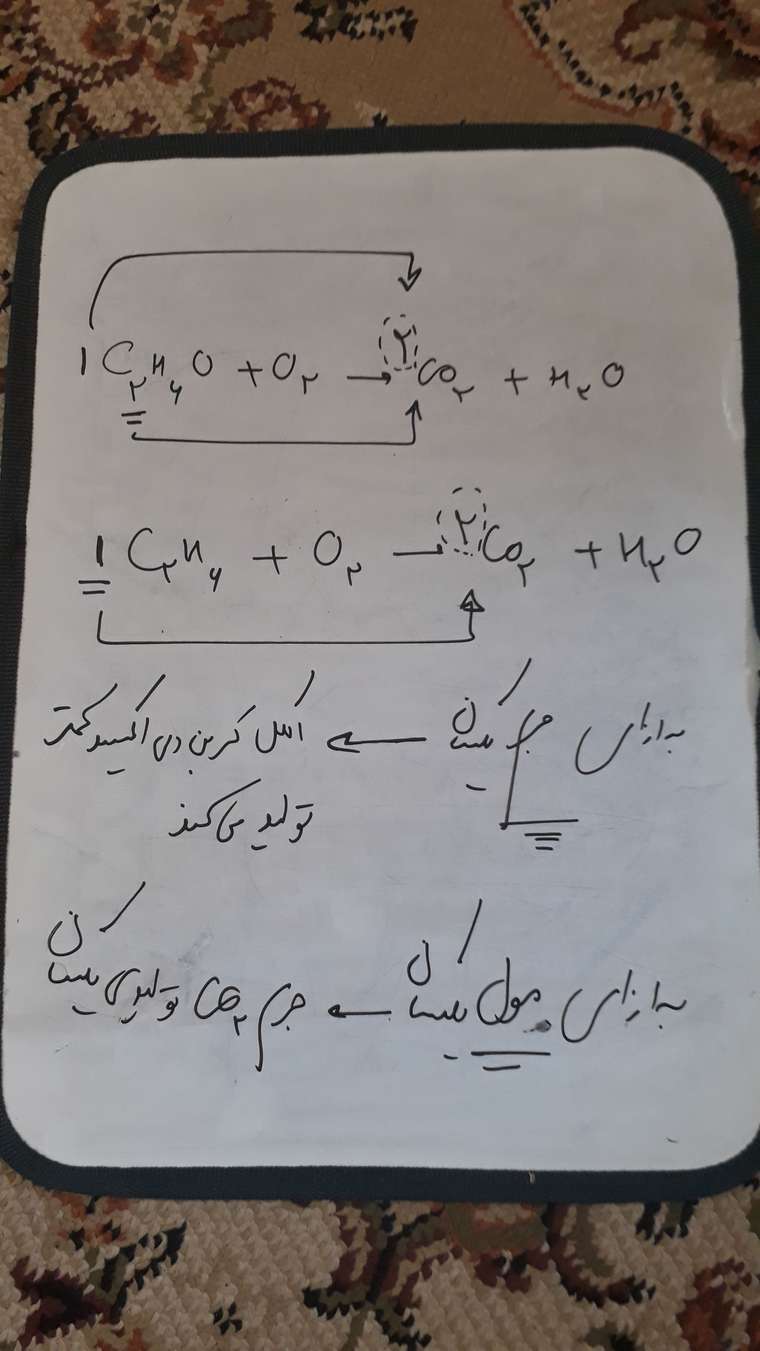 ۱ C۲H۶O + O۲ → ۲CO۲ + H۲O
۱ C۲H۶ + O۲ → ۲CO۲ + H۲O
به ازای جرم یکسان ← اتانول کربن دی اکسید کمتر
تولید می‌کند
به ازای مول یکسان ← جرم CO۲ تولیدی یکسان